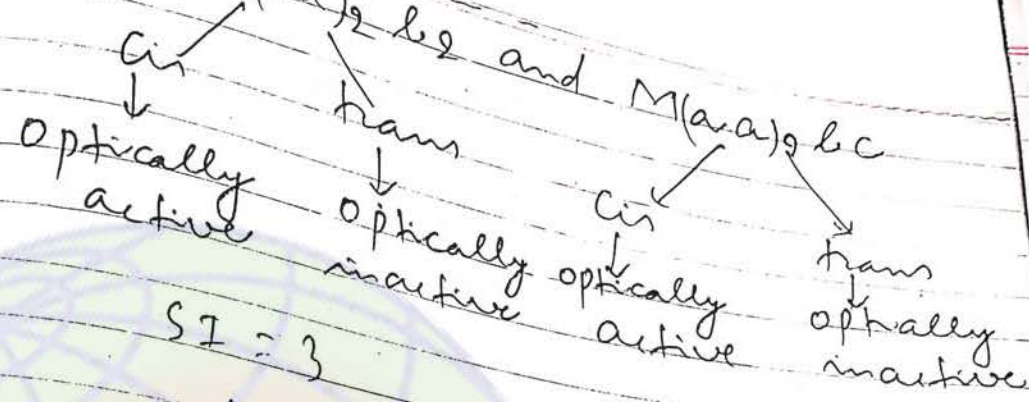 )2 b2 and M(a.a)2 bc
Cis trans Cis trans
Optically active
optically inactive
optically active
optically inactive
SI = 3